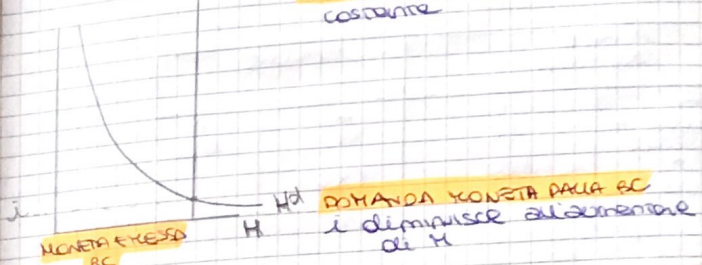 costante
i
H^d DOMANDA MONETA DALLA BC
H i diminuisce all'aumentare
di M
MONETA EMESSA
BC